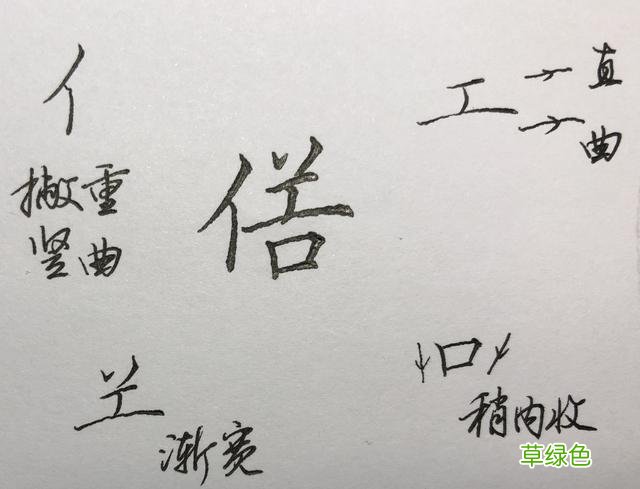 亻
撇重
竖曲
工
直
曲
渐宽
口
稍内收
草绿色